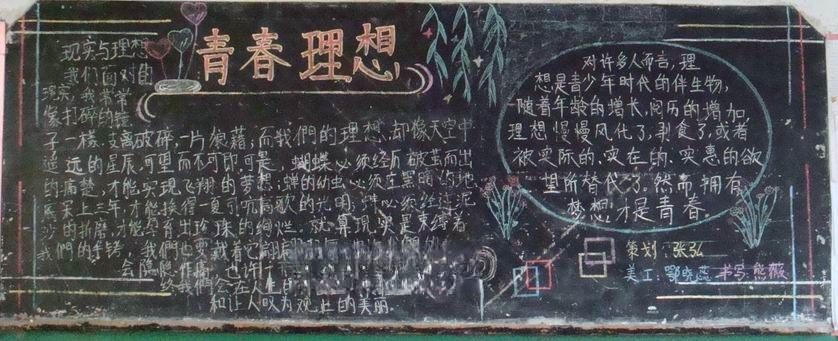 青春理想
现实与理想
我们面对的
现实,我常常
像打碎的镜
子一样支离破碎,一片狼藉,而我們的理想,却像天空中
遥远的星辰,可望而不可即,可是,蝴蝶必须经历破茧而出
的痛楚,才能实现飞翔的梦想;蝉的幼虫必须在黑暗的地
底呆上三年,才能换得一夏引吭高歌的光明;蚌必须经过泥
沙的折磨,才能孕育出珍珠的绚烂。就算现实是束缚着
我們的手铐,我們也要戴着它翩
会隐隐作痛,也许
给我們会在人生的
和让人叹为观止的美丽。
对许多人而言,理
想是青少年时代的伴生物,
随着年龄的增长,阅历的增加,
理想慢慢风化了,剥食了,或者
被实际的、实在的、实惠的欲
望所替代了。然而拥有
梦想才是青春。
策划:张弘
美工:鄂晓蕊 书写:熊薇